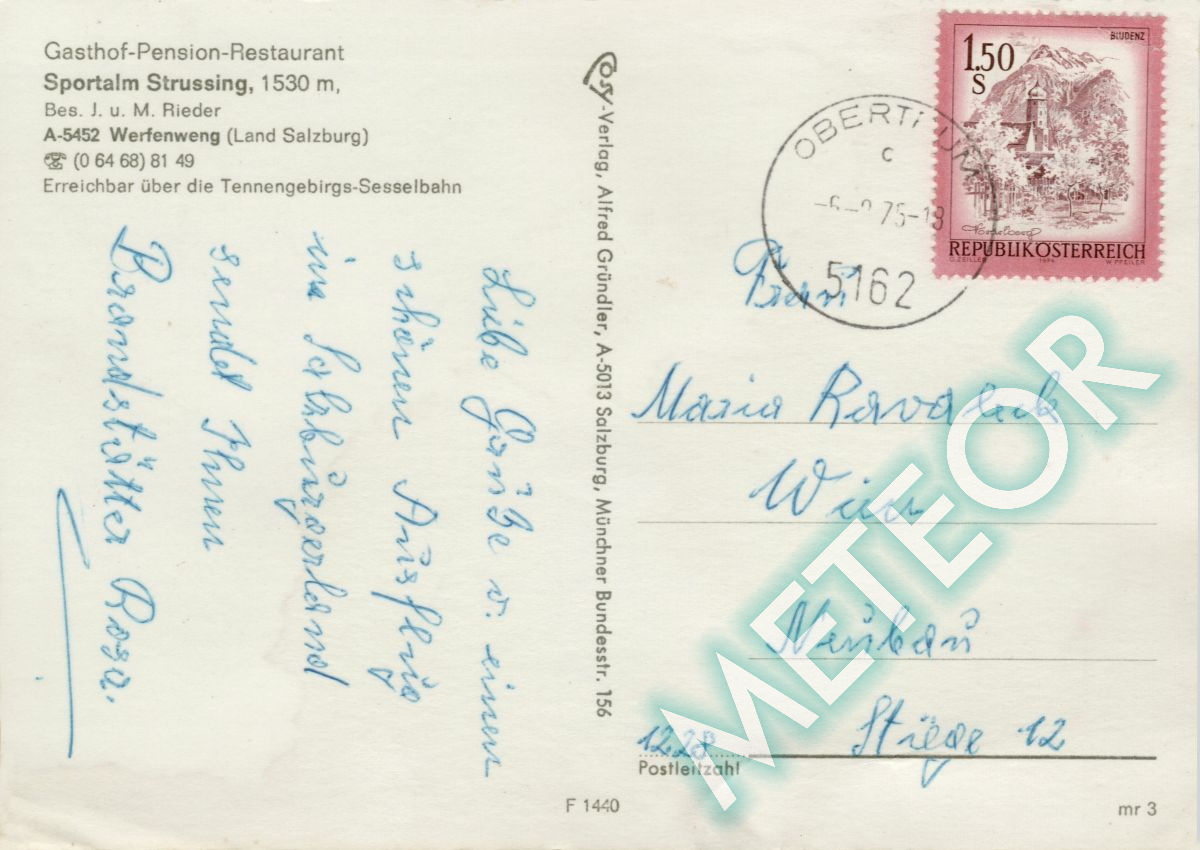 Gasthof-Pension-Restaurant
Sportalm Strussing, 1530 m,
Bes. J. u. M. Rieder
A-5452 Werfenweng (Land Salzburg)
☏ (0 64 68) 81 49
Erreichbar über die Tennengebirgs-Sesselbahn
Liebe Grüße v. einen
schönen Ausflug
ins Salzburgerland
sendet Ihnen
Brandstätter Rosa.
Cosy-Verlag, Alfred Gründler, A-5013 Salzburg, Münchner Bundesstr. 156
BLUDENZ
1.50
S
Vorarlberg
REPUBLIK ÖSTERREICH
O. ZEILLER 1974 W. PFEILER
OBERTRUM
c
75-18
5162
Frau
Maria
Wien
Neubau
Stiege 12
Postleitzahl
F 1440
mr 3
METEOR